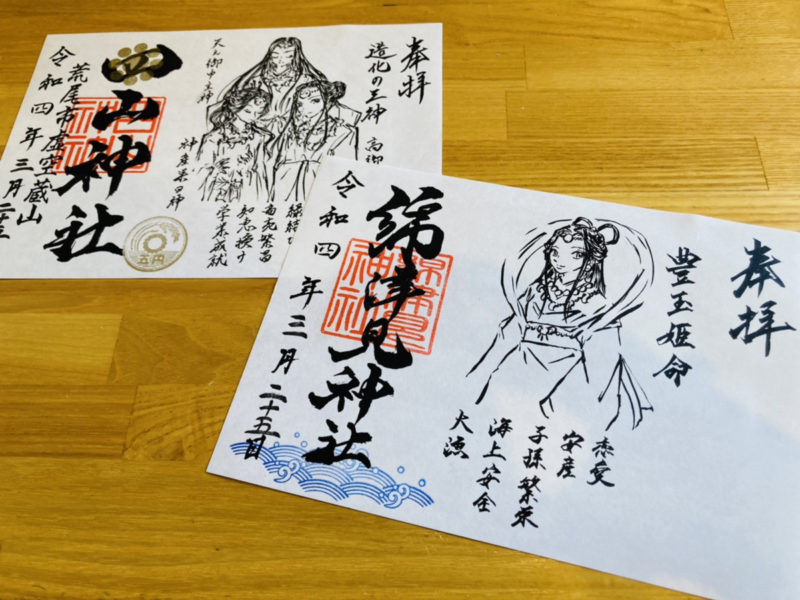 奉拝
造化の三神
高御
天之御中主神
神産巣日神
縁結び
商売繁昌
知恵授け
学業成就
四山神社
荒尾市虚空蔵山
令和四年三月二十五
五円
奉拝
豊玉姫命
恋愛
安産
子孫繁栄
海上安全
大漁
綿津見神社
令和四年三月二十五日